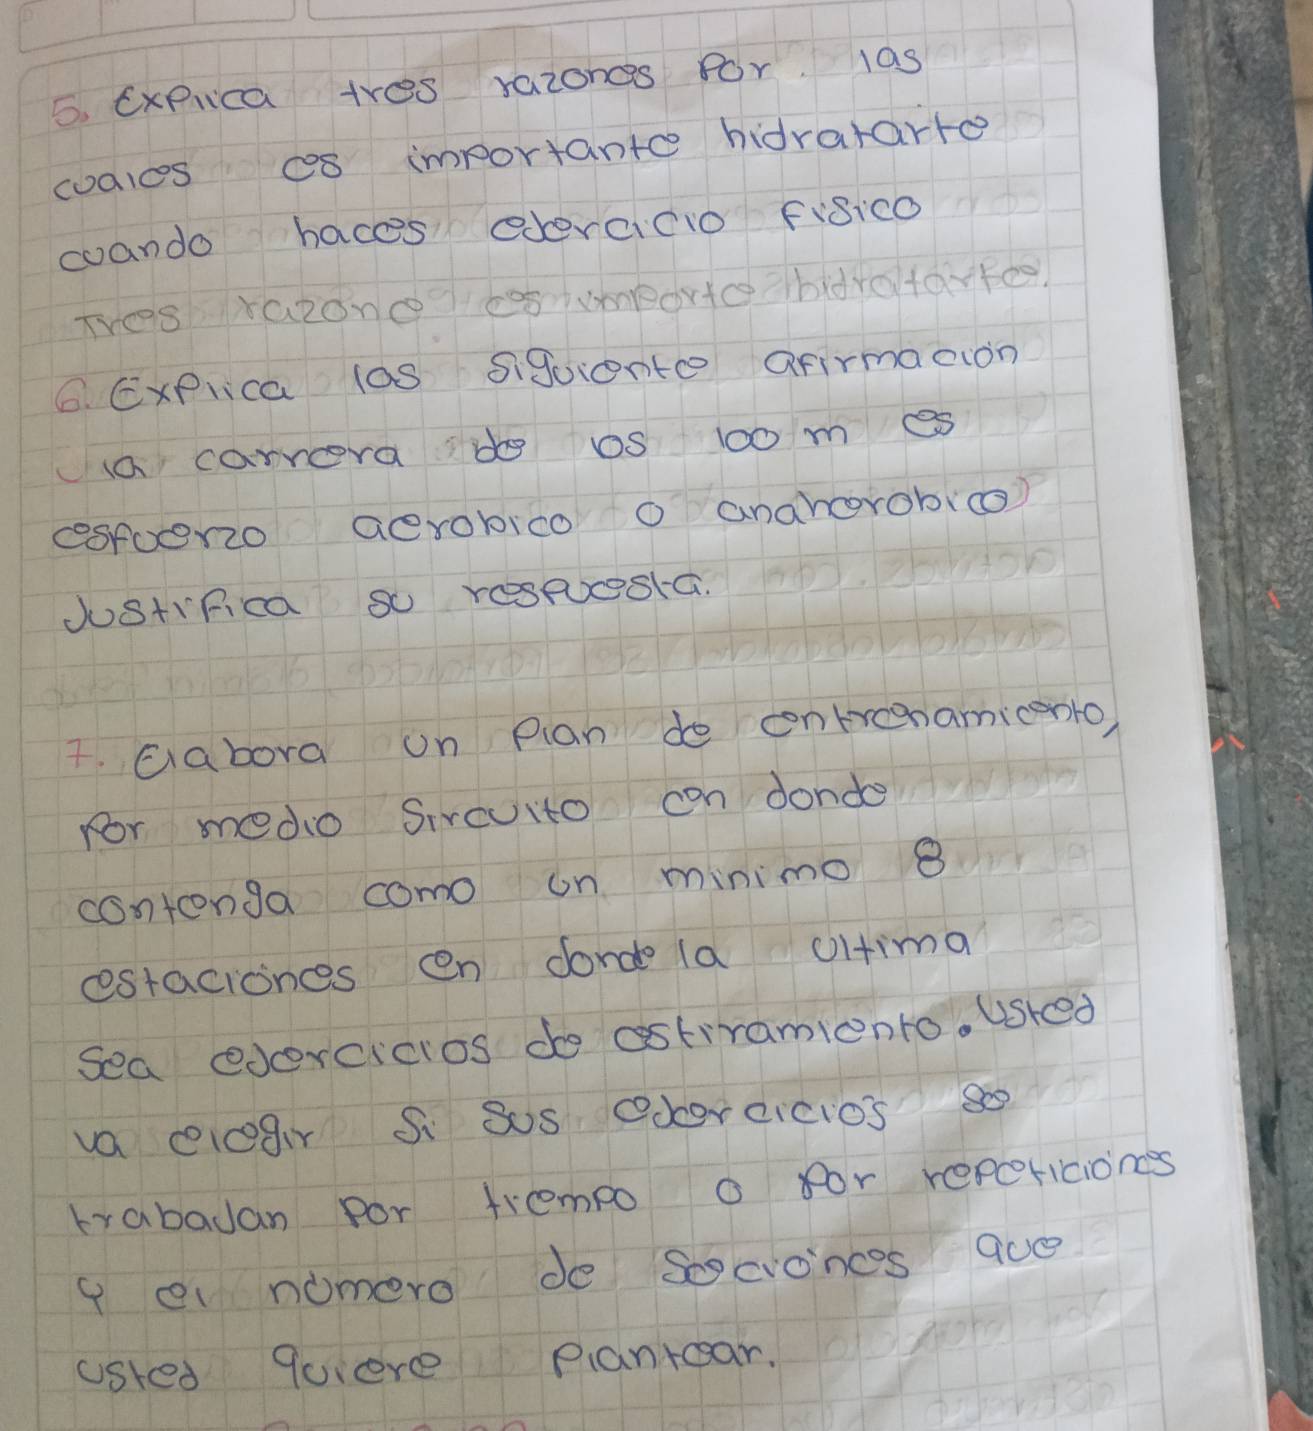 5. Explica tres razones por las
cuales es importante hidratarte
cuando haces ejercicio fisico
Tres razone es importe hidratarte.
6. Explica las siguiente afirmacion
la carrera de os 100 m es
esfuerzo aerobico o anaherobico
Justifica su respuesta.
7. Elabora un plan de entrenamiento,
por medio Sircuito en donde
contenga como un minimo 8
estaciones en donde la ultima
sea ejercicios de estiramiento. Usted
va elegir si sus ejercicios se
trabajan por tiempo o por repeticiones
y el número de secciones que
usted quiere plantear.